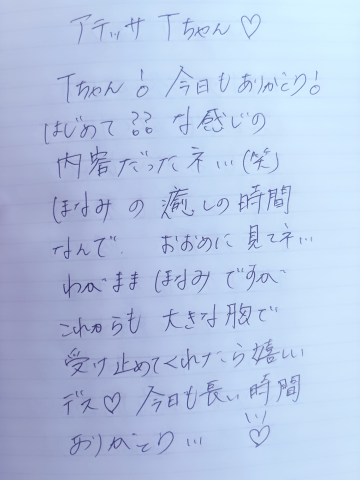 アテッサ Tちゃん♡
Tちゃん! 今日もありがとり!
はじめて?? な感じの
内容だったネ…(笑)
ほなみ の 癒しの時間
なんで、おおめに 見てネ…
わがまま ほなみ ですが
これからも 大きな胸で
受け止めてくれたら嬉しい
デス♡ 今日も長い時間
ありがとり… ♡